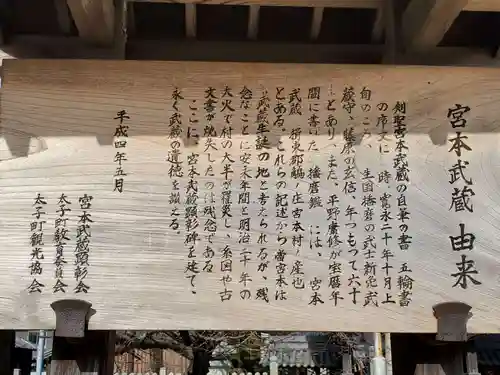 宮本武蔵 由来
剣聖宮本武蔵の自筆の書 五輪書
の序文に 時、寛永二十年十月上
旬のころ、 生国播磨の武士新免武
蔵守、藤原の玄信、年つもって六十
とあり、また、平野庸修が宝暦年
間に書いた 播磨鑑 には、 宮本
武蔵 揖東郡鵤ノ庄宮本村ノ産也
とある。これらの記述から 宮本は
武蔵生誕の地と考えられるが、残
念なことに安永年間と明治二十年の
大火で村の大半が罹災し、系図や古
文書が焼失したのは残念である
ここに、宮本武蔵顕彰碑を建て、
永く武蔵の遺徳を讃える。
平成四年五月
宮本武蔵顕彰会
太子町教育委員会
太子町観光協会